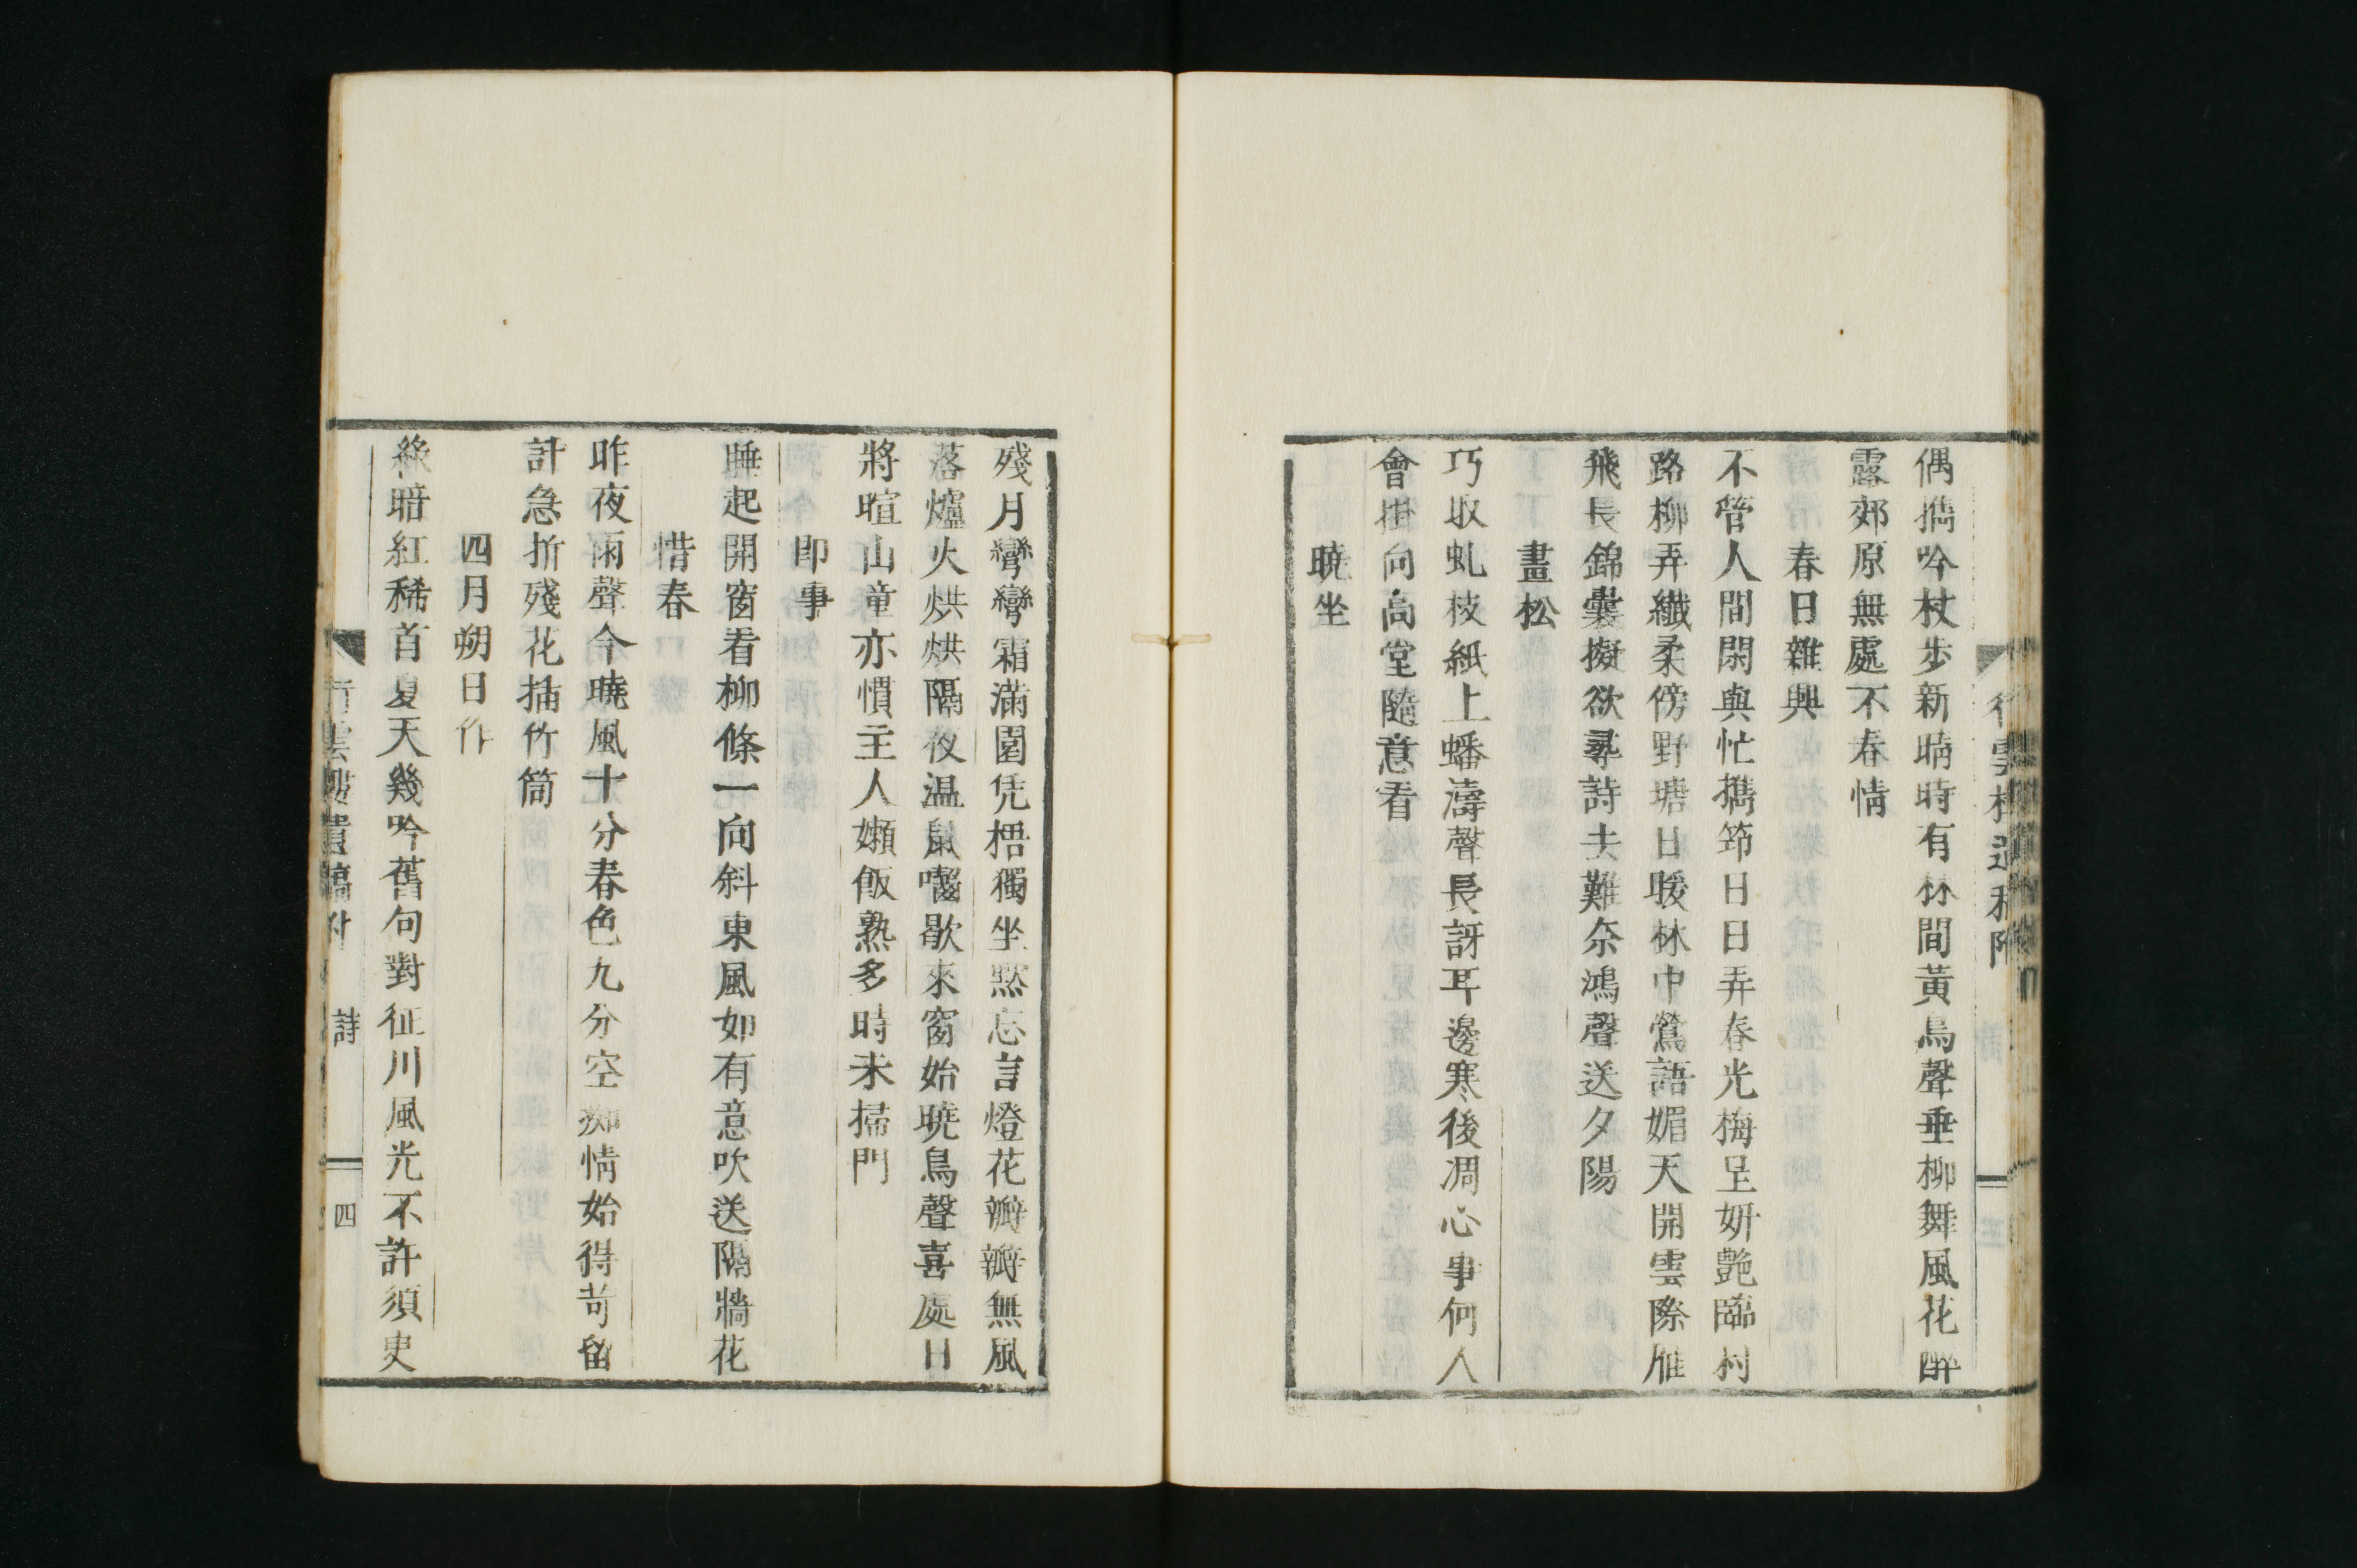 偶攜吟杖步新晴時有林間黃鳥聲垂柳舞風花醉
露郊原無處不春情
春日雜興
不管人間閑與忙攜笻日日弄春光梅呈妍艷臨村
路柳弄纖柔傍野塘日暖林中鶯語媚天開雲際雁
飛長錦囊擬欲尋詩去難奈鴻聲送夕陽
畫松
巧取虬枝紙上蟠濤聲長訝耳邊寒後凋心事何人
會掛向高堂隨意看
曉坐
殘月彎彎霜滿園凭梧獨坐默忘言燈花瓣瓣無風
落爐火烘烘隔夜温鼠嚙歇來窗始曉鳥聲喜處日
將暄山童亦慣主人嬾飯熟多時未掃門
即事
睡起開窗看柳條一向斜東風如有意吹送隔牆花
惜春
昨夜雨聲今曉風十分春色九分空痴情始得苟留
計急折殘花插竹筒
四月朔日作
綠暗紅稀首夏天幾吟舊句對征川風光不許須臾
詩
四